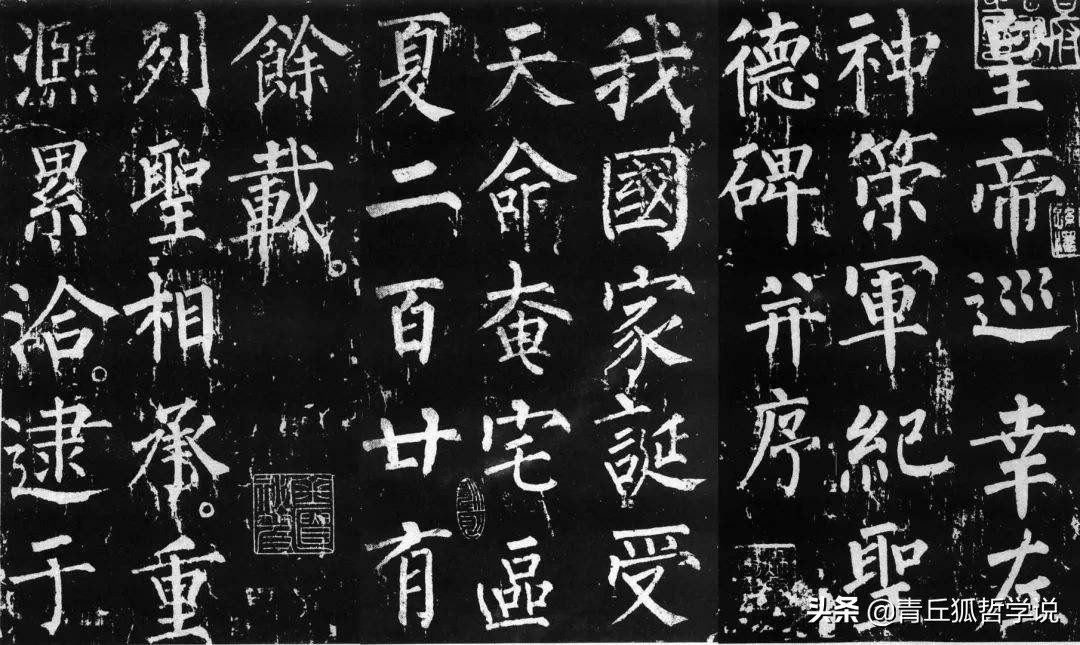 皇帝巡幸左
神策軍紀聖
德碑并序
我國家誕受
天命奄宅區
夏二百廿有
餘載。
列聖相承。重
熙累洽。逮于
头条 @青丘狐哲学说